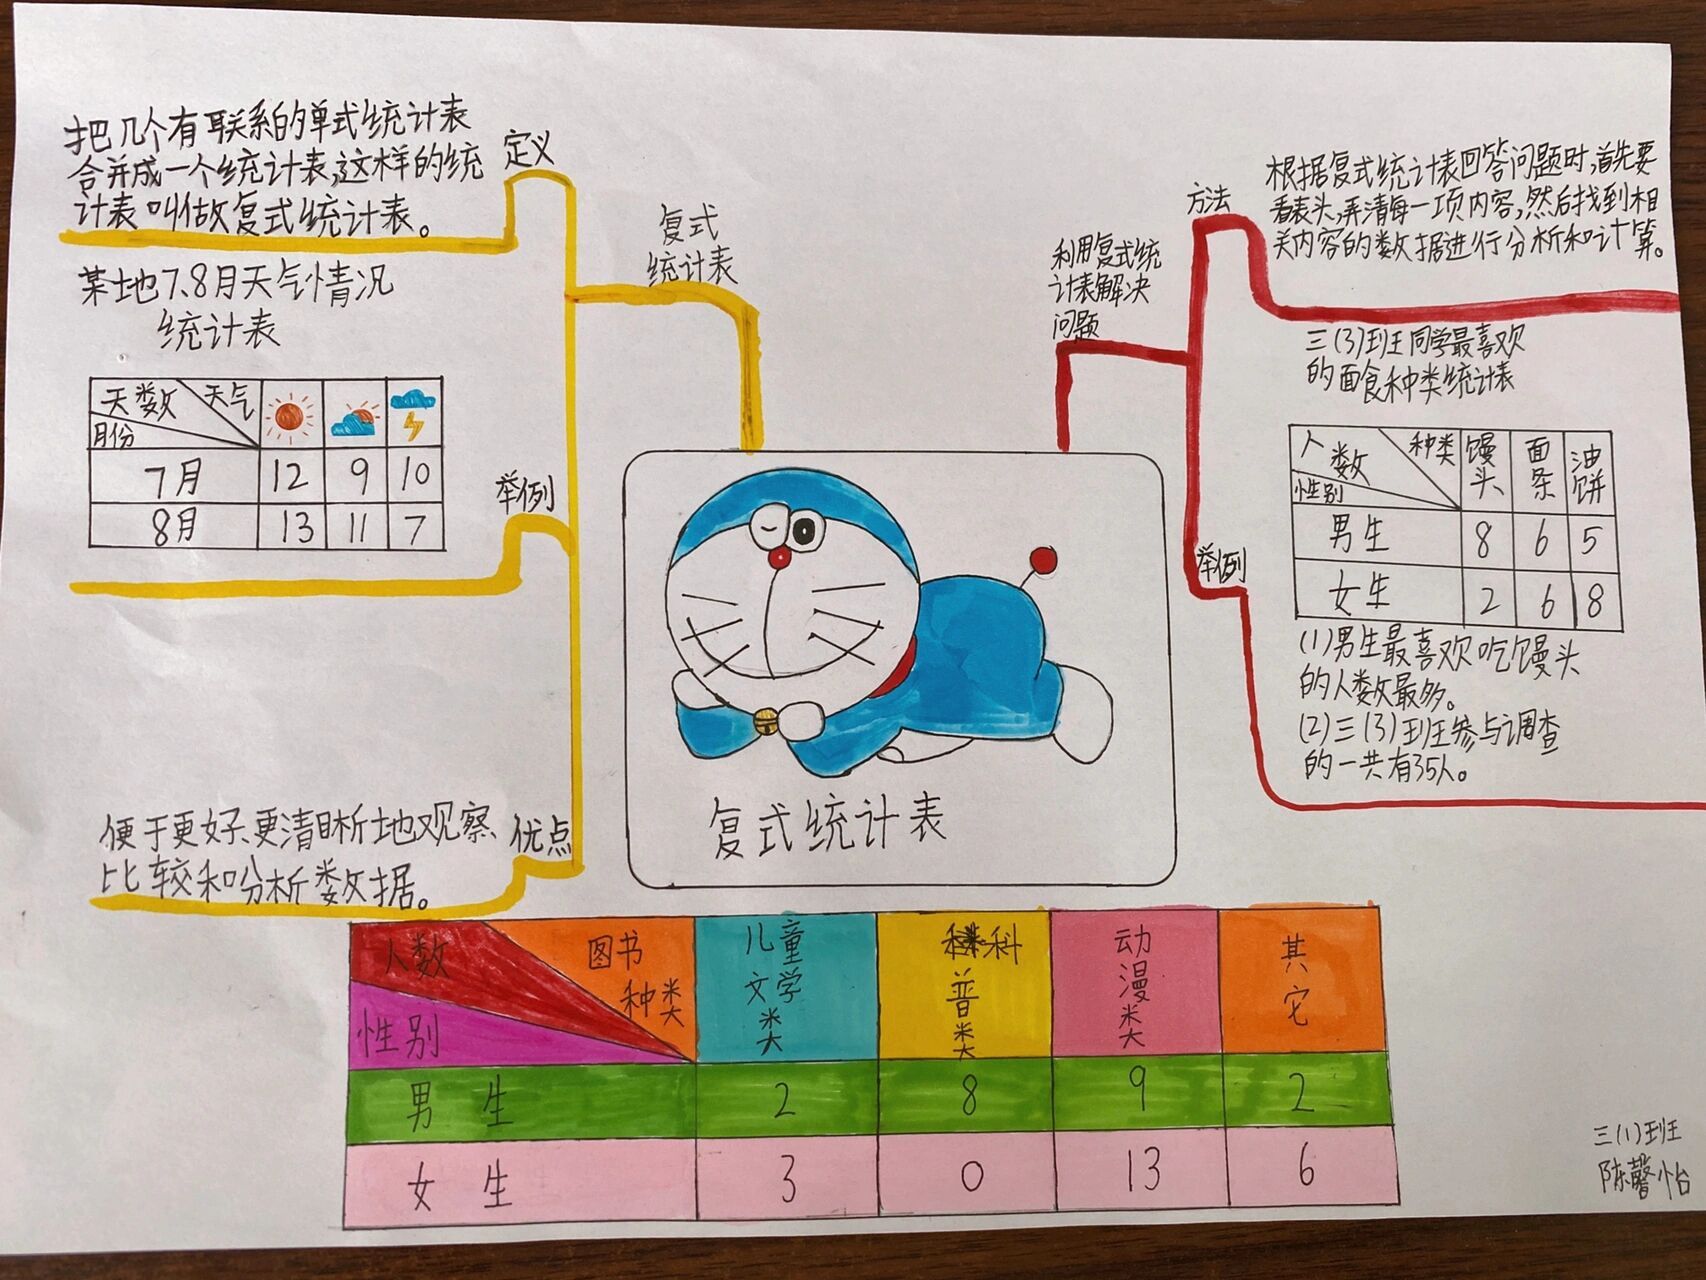 把几个有联系的单式统计表
合并成一个统计表,这样的统
计表叫做复式统计表。
定义
某地7、8月天气情况
统计表
天数 天气
月份
7月 12 9 10
8月 13 11 7
举例
便于更好、更清晰地观察、
比较和分析数据。
优点
复式
统计表
利用复式统
计表解决
问题
方法
根据复式统计表回答问题时,首先要
看表头,弄清每一项内容,然后找到相
关内容的数据进行分析和计算。
三(3)班同学最喜欢
的面食种类统计表
人数 种类 馒头 面条 油饼
性别
男生 8 6 5
女生 2 6 8
举例
(1)男生最喜欢吃馒头
的人数最多。
(2)三(3)班参与调查
的一共有35人。
复式统计表
人数 图书种类 儿童文学类 科普类 动漫类 其它
性别
男生 2 8 9 2
女生 3 0 13 6
三(1)班
陈馨怡